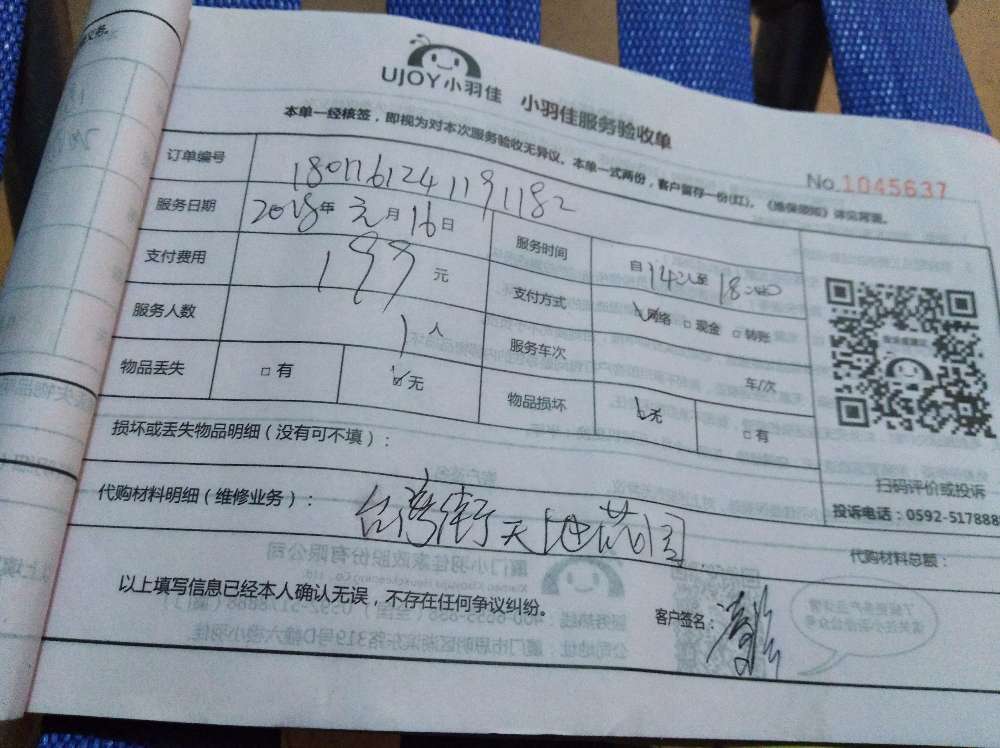 UJOY小羽佳 小羽佳服务验收单
本单一经核签，即视为对本次服务验收无异议。本单一式两份，客户留存一份(红)。《维保须知》详见背面。
No.1045637
订单编号 1801161241191182
服务日期 2018年 元月16日 服务时间 自14:22至18:20
支付费用 199元 支付方式 网络 □现金 □转账
服务人数 1人 服务车次 车/次
物品丢失 □有 无 物品损坏 无 □有
损坏或丢失物品明细（没有可不填）：
扫码评价或投诉
代购材料明细（维修业务）： 台湾街天地花园
投诉电话：0592-517888
代购材料总额：
以上填写信息已经本人确认无误，不存在任何争议纠纷。 客户签名：